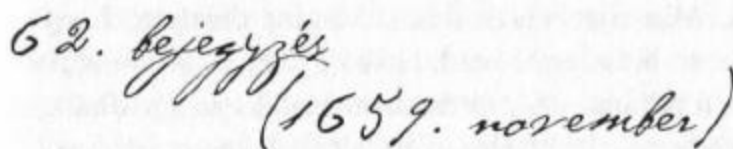 62. bejegyzés
(1659. november)